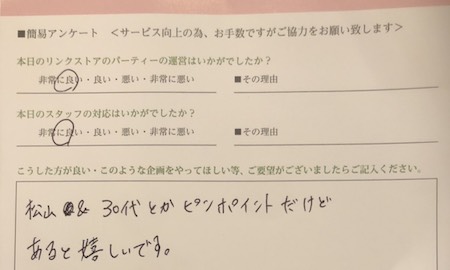 ■簡易アンケート ＜サービス向上の為、お手数ですがご協力をお願い致します＞
本日のリンクストアのパーティーの運営はいかがでしたか？
非常に良い・良い・悪い・非常に悪い ■その理由
本日のスタッフの対応はいかがでしたか？
非常に良い・良い・悪い・非常に悪い ■その理由
こうした方が良い・このような企画をやってほしい等、ご要望がございましたらご記入ください。
松山 & 30代とかピンポイントだけど
あると嬉しいです。